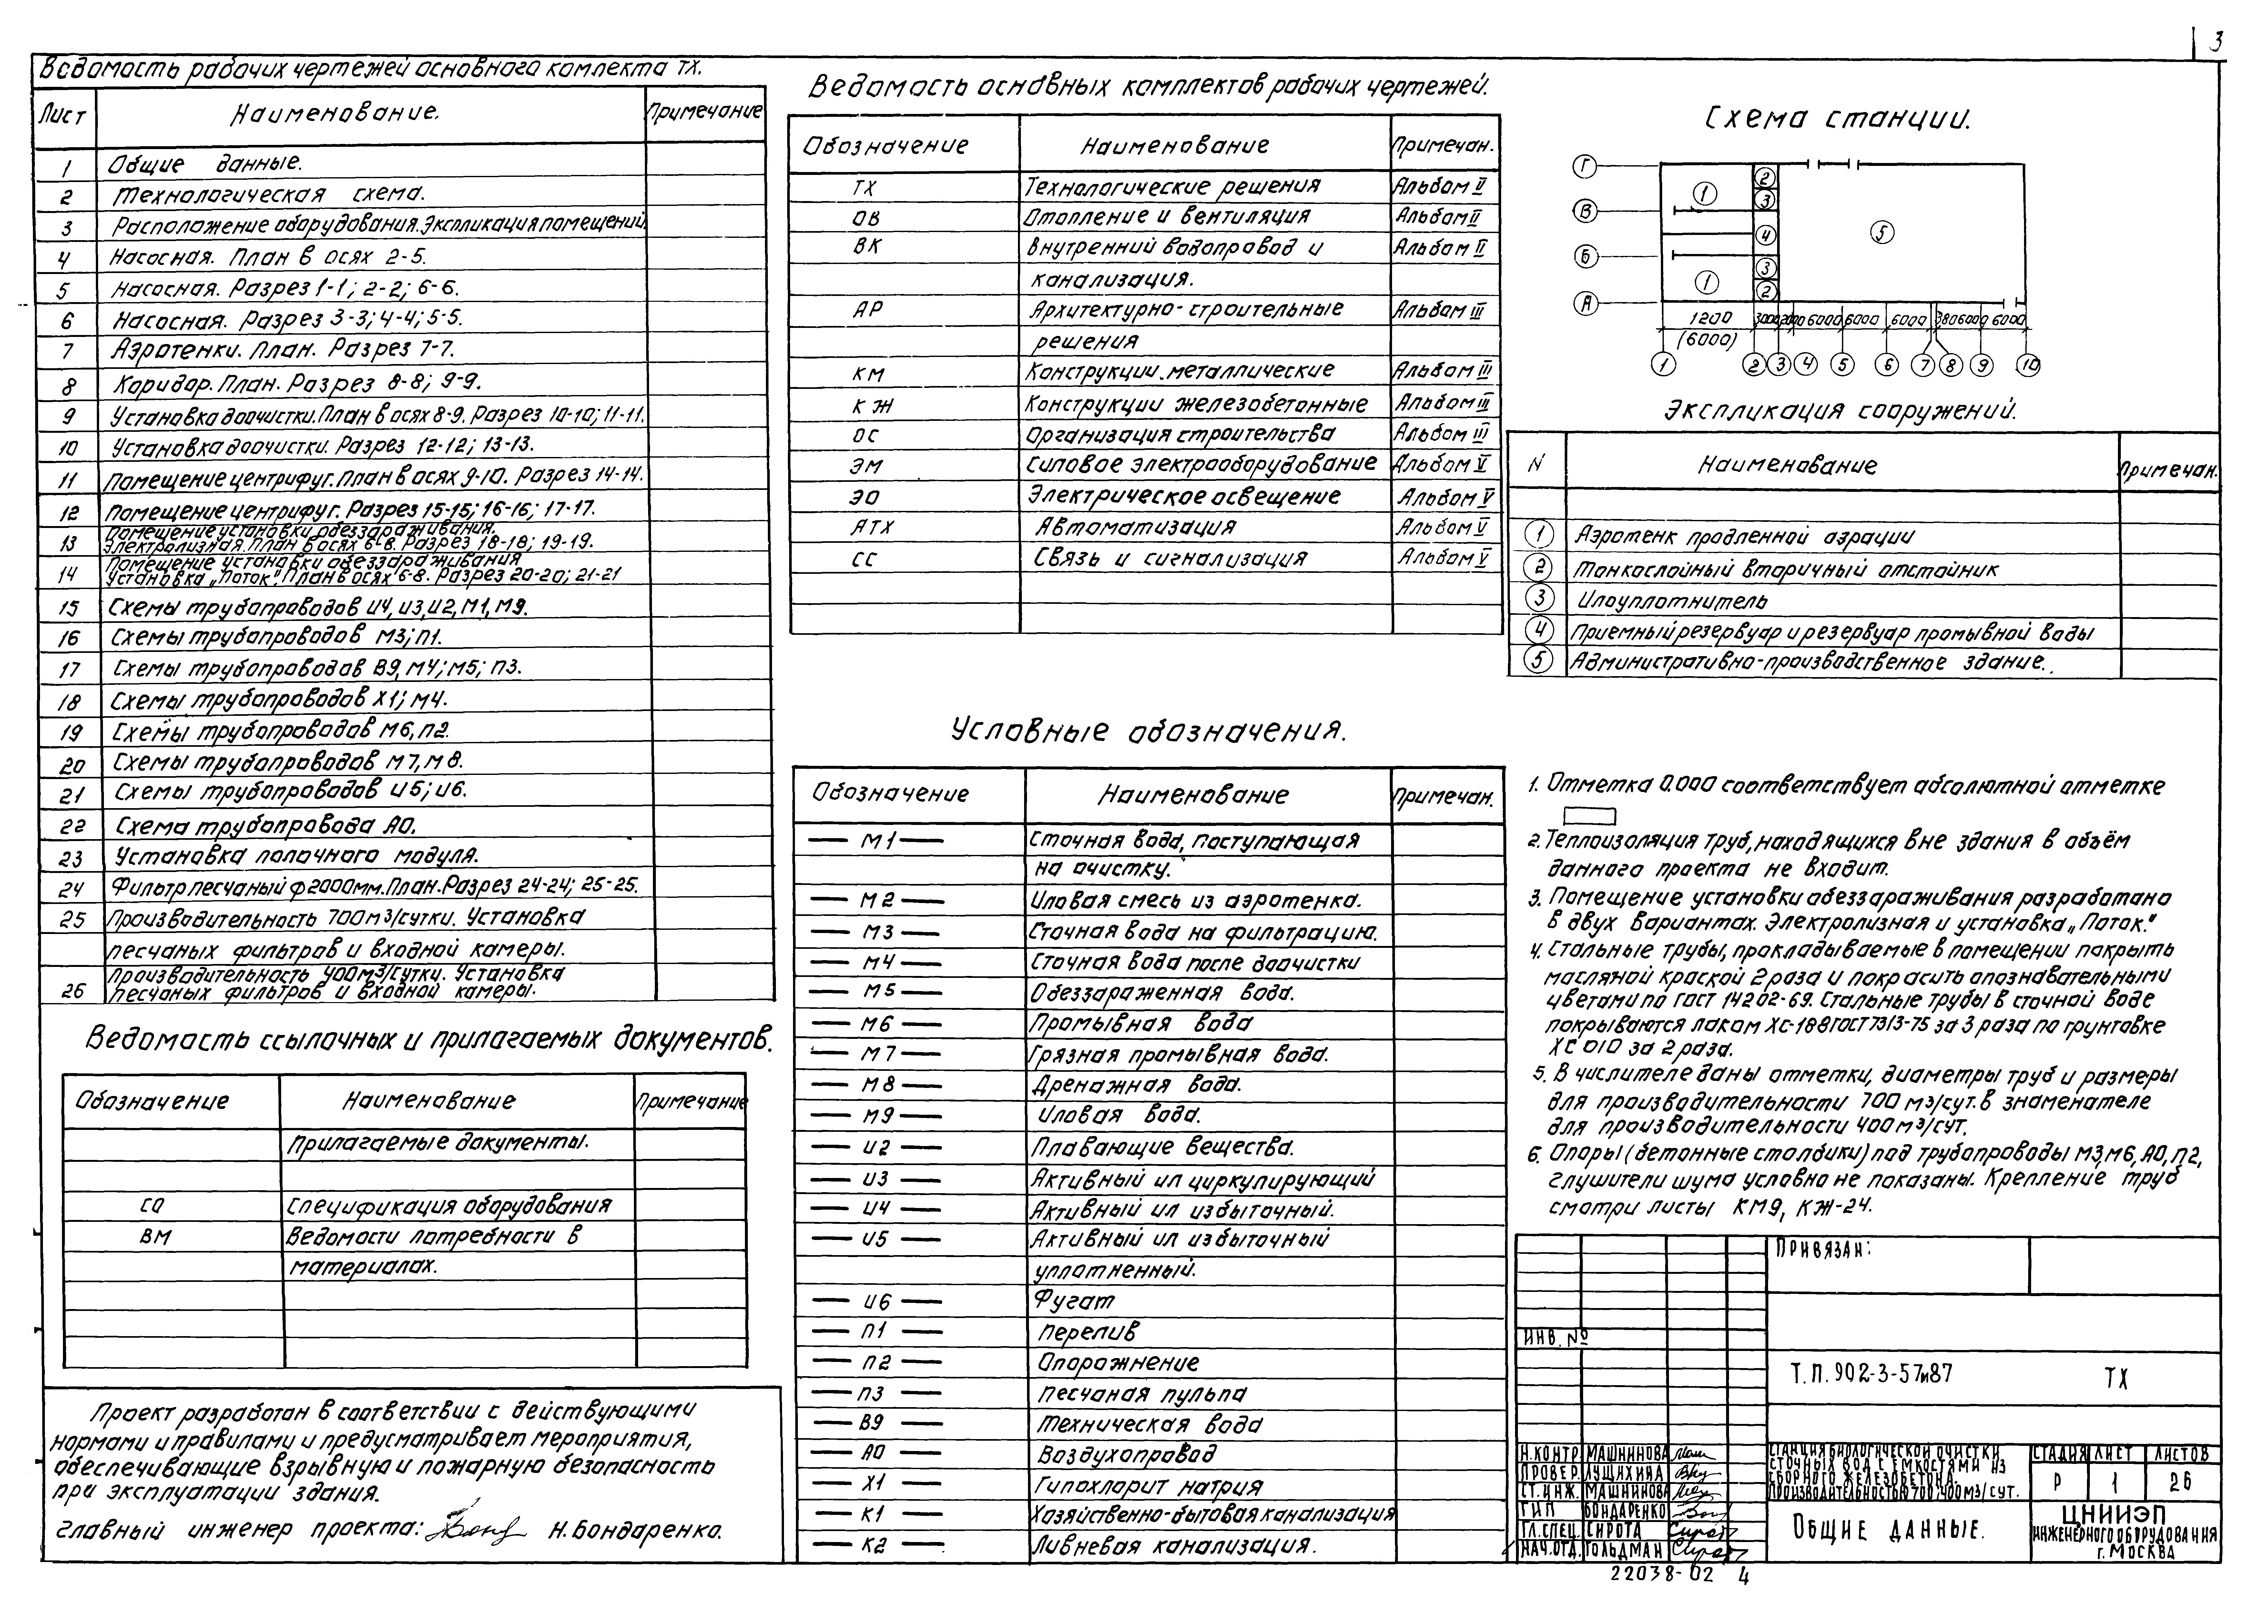 3
Ведомость рабочих чертежей основного комлекта ТХ.
Лист Наименование. Примечание
1 Общие данные.
2 Технологическая схема.
3 Расположение оборудования. Экспликация помещений.
4 Насосная. План в осях 2-5.
5 Насосная. Разрез 1-1; 2-2; 6-6.
6 Насосная. Разрез 3-3; 4-4; 5-5.
7 Аэротенки. План. Разрез 7-7.
8 Коридор. План. Разрез 8-8; 9-9.
9 Установка доочистки. План в осях 8-9. Разрез 10-10; 11-11.
10 Установка доочистки. Разрез 12-12; 13-13.
11 Помещение центрифуг. План в осях 9-10. Разрез 14-14.
12 Помещение центрифуг. Разрез 15-15; 16-16; 17-17.
Помещение установки обеззараживания.
13 Электролизная. План в осях 6-8. Разрез 18-18; 19-19.
Помещение установки обеззараживания
14 Установка „Поток". План в осях 6-8. Разрез 20-20; 21-21
15 Схемы трубопроводов И4, И3, И2, М1, М9.
16 Схемы трубопроводов М3; П1.
17 Схемы трубопроводов В9, М4; М5; П3.
18 Схемы трубопроводов Х1; М4.
19 Схемы трубопроводов М6, П2.
20 Схемы трубопроводов М7, М8.
21 Схемы трубопроводов И5; И6.
22 Схема трубопровода А0.
23 Установка полочного модуля.
24 Фильтр песчаный ф2000мм. План. Разрез 24-24; 25-25.
25 Производительность 700м3/сутки. Установка
песчаных фильтров и входной камеры.
Производительность 400м3/сутки. Установка
26 песчаных фильтров и входной камеры.
Ведомость ссылочных и прилагаемых документов.
Обозначение Наименование Примечание
Прилагаемые документы.
СО Спецификация оборудования
ВМ Ведомости потребности в
материалах.
Проект разработан в соответствии с действующими
нормами и правилами и предусматривает мероприятия,
обеспечивающие взрывную и пожарную безопасность
при эксплуатации здания.
Главный инженер проекта: Н. Бондаренко.
Ведомость основных комплектов рабочих чертежей.
Обозначение Наименование Примечан.
ТХ Технологические решения Альбом II
ОВ Отопление и вентиляция Альбом II
ВК Внутренний водопровод и Альбом II
канализация.
АР Архитектурно-строительные Альбом III
решения
КМ Конструкции металлические Альбом III
КЖ Конструкции железобетонные Альбом III
ОС Организация строительства Альбом III
ЭМ Силовое электрооборудование Альбом V
ЭО Электрическое освещение Альбом V
АТХ Автоматизация Альбом V
СС Связь и сигнализация Альбом V
Условные обозначения.
Обозначение Наименование Примечан.
М1 Сточная вода, поступающая
на очистку.
М2 Иловая смесь из аэротенка.
М3 Сточная вода на фильтрацию.
М4 Сточная вода после доочистки
М5 Обеззараженная вода.
М6 Промывная вода
М7 Грязная промывная вода.
М8 Дренажная вода.
М9 Иловая вода.
И2 Плавающие вещества.
И3 Активный ил циркулирующий
И4 Активный ил избыточный.
И5 Активный ил избыточный
уплотненный.
И6 Фугат
П1 Перелив
П2 Опорожнение
П3 Песчаная пульпа
В9 Техническая вода
А0 Воздухопровод
Х1 Гипохлорит натрия
К1 Хозяйственно-бытовая канализация
К2 Ливневая канализация.
Схема станции.
Г
В
Б
А
1 2 3 4 5 3 1 2
1200 3000 6000 6000 6000 380 6000 6000
(6000)
1 2 3 4 5 6 7 8 9 10
Экспликация сооружений.
N Наименование Примечан.
1 Аэротенк продленной аэрации
2 Тонкослойный вторичный отстойник
3 Илоуплотнитель
4 Приемный резервуар и резервуар промывной воды
5 Административно-производственное здание.
1. Отметка 0.000 соответствует абсолютной отметке
2. Теплоизоляция труб, находящихся вне здания в объём
данного проекта не входит.
3. Помещение установки обеззараживания разработано
в двух вариантах. Электролизная и установка „Поток."
4. Стальные трубы, прокладываемые в помещении покрыть
масляной краской 2 раза и покрасить опознавательными
цветами по ГОСТ 14202-69. Стальные трубы в сточной воде
покрываются лаком ХС-188 ГОСТ 7313-75 за 3 раза по грунтовке
ХС 010 за 2 раза.
5. В числителе даны отметки, диаметры труб и размеры
для производительности 700 м3/сут. в знаменателе
для производительности 400 м3/сут.
6. Опоры (бетонные столбики) под трубопроводы М3, М6, А0, П2,
глушители шума условно не показаны. Крепление труб
смотри листы КМ9, КЖ-24.
ПРИВЯЗАН:
ИНВ. №
Т.П. 902-3-57и87 ТХ
Н.КОНТР МАШНИНОВА
ПРОВЕР. ЛУЩИХИНА
СТ.ИНЖ. МАШНИНОВА
ГИП БОНДАРЕНКО
ГЛ.СПЕЦ. СИРОТА
НАЧ.ОТД. ГОЛЬДМАН
СТАНЦИЯ БИОЛОГИЧЕСКОЙ ОЧИСТКИ
СТОЧНЫХ ВОД С ЕМКОСТЯМИ ИЗ
СБОРНОГО ЖЕЛЕЗОБЕТОНА.
ПРОИЗВОДИТЕЛЬНОСТЬЮ 700; 400 М3/СУТ.
СТАДИЯ ЛИСТ ЛИСТОВ
Р 1 26
ОБЩИЕ ДАННЫЕ.
ЦНИИЭП
ИНЖЕНЕРНОГО ОБОРУДОВАНИЯ
г. МОСКВА
22038-02 4